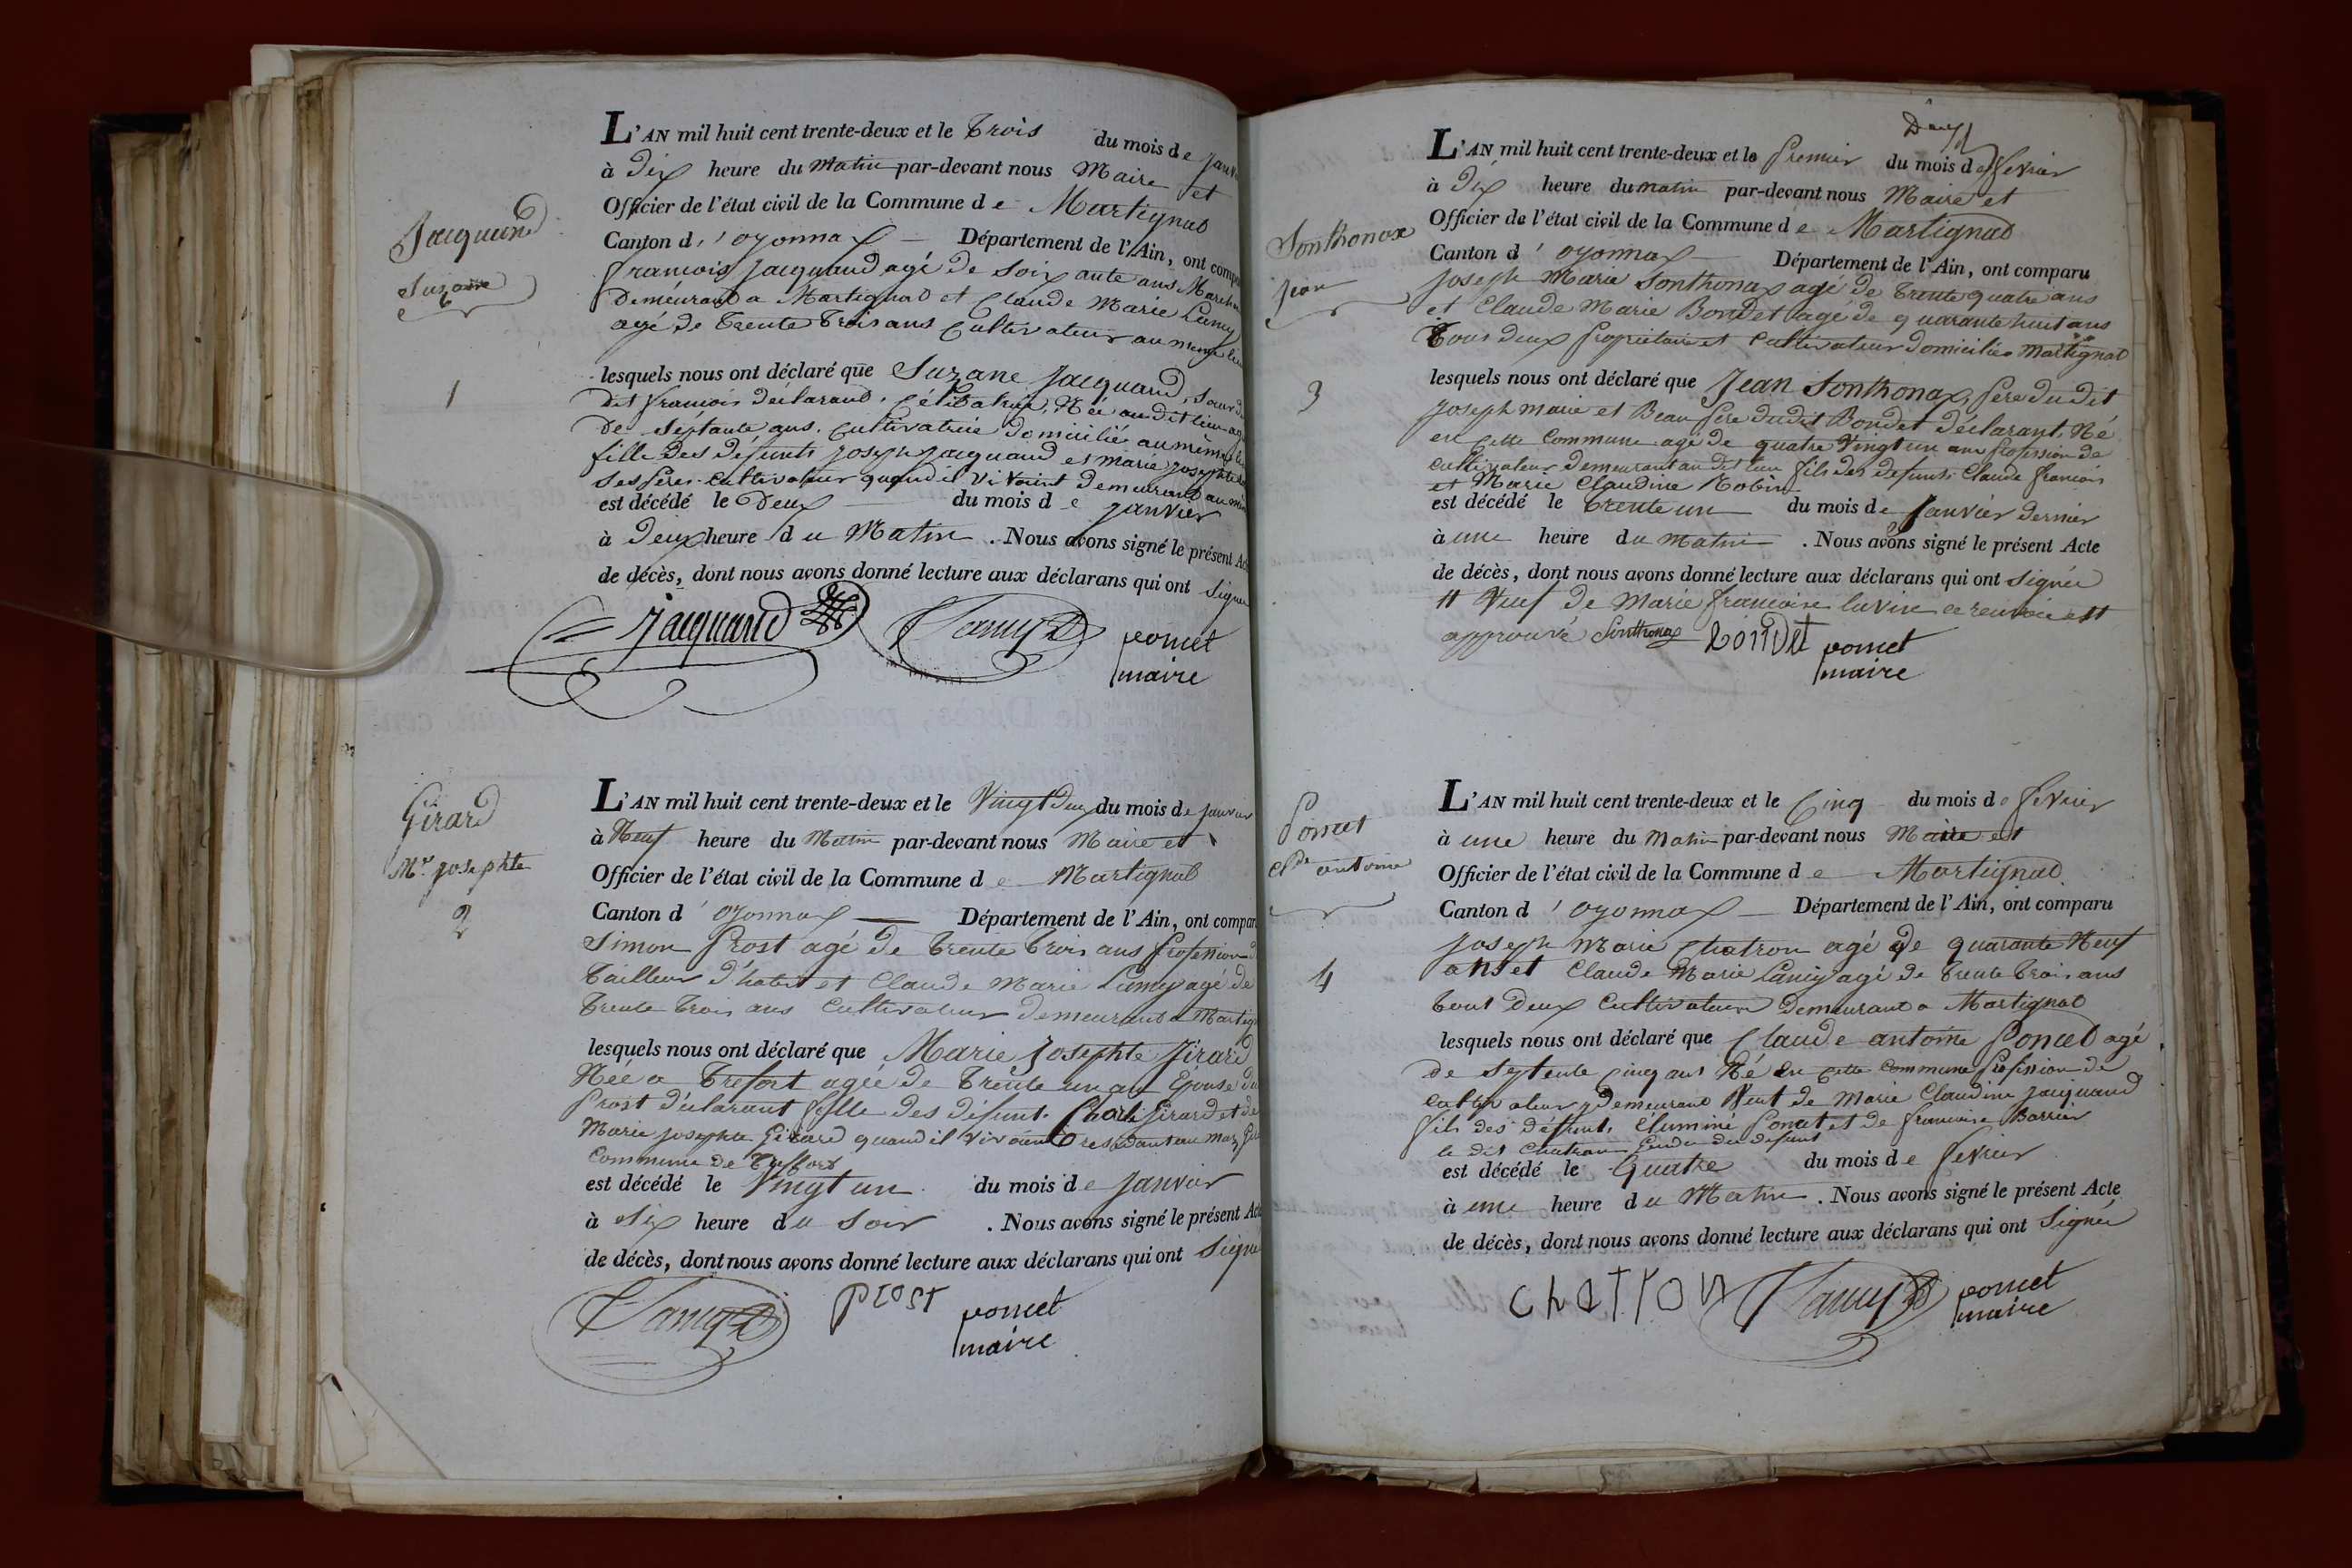 Jacquand
Suzanne
1
L'AN mil huit cent trente-deux et le trois du mois de janv
à Dix heure du Matin par-devant nous Maire et
Officier de l'état civil de la Commune de Martignat
Canton d'oyonnax Département de l'Ain, ont compa
francois Jacquand agé de Soixante ans March
Demeurant a Martignat et Claude Marie Lamy
agé de trente trois ans Cultivateur au meme lieu
lesquels nous ont déclaré que Suzane Jacquand, Sœur du
Dit francois Déclarant, Célibataire, Née au dit lieu agé
De Séptante ans. Cultivatrice domicilié au même lieu
fille Des Défunts Joseph Jacquand et Marie Josephte
Ses Père. Cultivateur quand il vivoint demeurant au mêm
est décédé le Deux du mois de janvier
à Deux heure du Matin. Nous avons signé le présent Acte
de décès, dont nous avons donné lecture aux déclarans qui ont Signé
Jacquand Lamy poncet
maire
Girard
Mie josephte
2
L'AN mil huit cent trente-deux et le Vingt Deux du mois de janvier
à Neuf heure du Matin par-devant nous Maire et
Officier de l'état civil de la Commune de Martignat
Canton d'oyonnax Département de l'Ain, ont compar
Simon Prost agé de trente trois ans Profession d
tailleur d'habit et Claude Marie Lamy agé de
trente trois ans Cultivateur Demeurant a Martign
lesquels nous ont déclaré que Marie Josephte Jirard
Née a trefort agée de trente un an Epouse du
Prost Déclarant fille des défunt. Charle Girard et de
Marie josephte Girard quand il vivoint residant au Maz
Commune de treffort
est décédé le Vingt un du mois de janvier
à Six heure du Soir. Nous avons signé le présent Acte
de décès, dont nous avons donné lecture aux déclarans qui ont Signé
Lamy prost poncet
maire
Sonthonax
jean
3
Deux
L'AN mil huit cent trente-deux et le Premier du mois de fevrier
à Dix heure du matin par-devant nous Maire et
Officier de l'état civil de la Commune de Martignat
Canton d'oyonnax Département de l'Ain, ont comparu
Joseph Marie Sonthonax agé de trente quatre ans
et Claude Marie Bondet agé de quarante huit ans
tous deux Proprietaire et Cultivateur domiciliés Martignat
lesquels nous ont déclaré que Jean Sonthonax, Pere du dit
Joseph marie et Beau Pere du dit Bondet déclarant, Né
en Cette Commune agé de quatre Vingt un ans Profession de
cultivateur Demeurant au dit lieu fils des defunts Claude francois
et Marie Claudine Robin
est décédé le trente un du mois de Janvier dernier
à une heure du matin. Nous avons signé le présent Acte
de décès, dont nous avons donné lecture aux déclarans qui ont Signée
# Veuf de Marie francoise ce renvoie est
approuvé Sonthonax bondet poncet
maire
Poncet
Cde antoine
4
L'AN mil huit cent trente-deux et le Cinq du mois de fevrier
à une heure du Matin par-devant nous Maire et
Officier de l'état civil de la Commune de Martignat
Canton d'oyonnax Département de l'Ain, ont comparu
Joseph Marie Chatron agé de quarante Neuf
ans et Claude Marie Lamy agé de trente trois ans
tout Deux Cultivateur Demeurant a Martignat
lesquels nous ont déclaré que Claude antoine Poncet agé
De Septente Cinq ans Né en Cette Commune Profession de
cultivateur y Demeurant Veuf de Marie Claudine Jacquand
fils des défunts, Poncet et de francoise Barrier
le dit Chatron Gendre du defunt
est décédé le Quatre du mois de fevrier
à une heure du Matin. Nous avons signé le présent Acte
de décès, dont nous avons donné lecture aux déclarans qui ont Signée
chatron Lamy poncet
maire